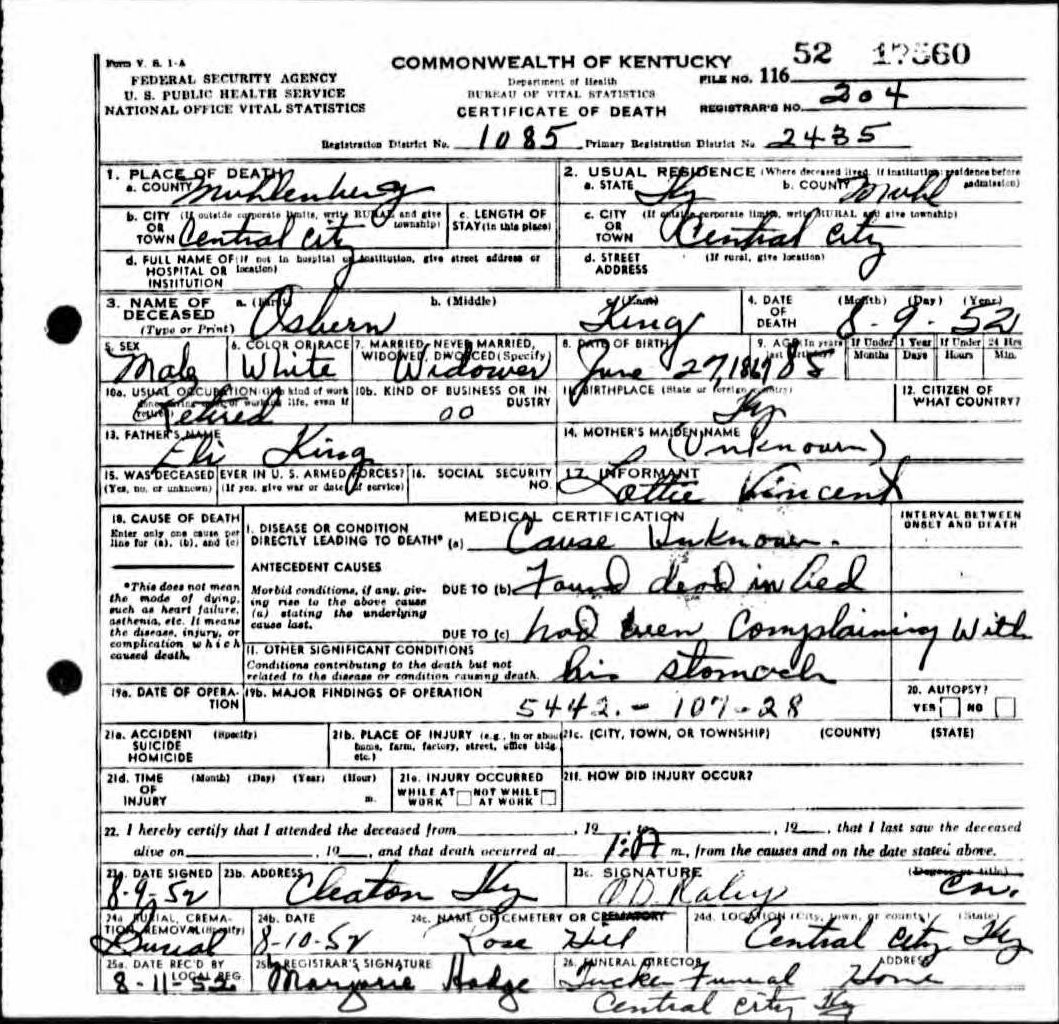 Form V. S. 1-A
FEDERAL SECURITY AGENCY
U. S. PUBLIC HEALTH SERVICE
NATIONAL OFFICE VITAL STATISTICS
COMMONWEALTH OF KENTUCKY
Department of Health
BUREAU OF VITAL STATISTICS
CERTIFICATE OF DEATH
52 17560
FILE NO. 116
REGISTRAR'S NO. 204
Registration District No. 1085 Primary Registration District No. 2435
1. PLACE OF DEATH
a. COUNTY Muhlenberg
b. CITY (If outside corporate limits, write RURAL and give township)
OR TOWN Central City
c. LENGTH OF STAY (in this place)
d. FULL NAME OF (If not in hospital or institution, give street address or location)
HOSPITAL OR INSTITUTION
2. USUAL RESIDENCE (Where deceased lived. If institution: residence before admission)
a. STATE Ky b. COUNTY Muhl
c. CITY (If outside corporate limits, write RURAL and give township)
OR TOWN Central City
d. STREET ADDRESS (If rural, give location)
3. NAME OF DECEASED (Type or Print)
a. (First) b. (Middle) (Last)
Osbern King
4. DATE OF DEATH (Month) (Day) (Year)
8-9-52
5. SEX Male
6. COLOR OR RACE White
7. MARRIED, NEVER MARRIED, WIDOWED, DIVORCED (Specify) Widower
8. DATE OF BIRTH June 27, 1869
9. AGE (In years last birthday)
If Under 1 Year Months Days
If Under 24 Hrs Hours Min.
10a. USUAL OCCUPATION (Give kind of work done during most of working life, even if retired) Retired
10b. KIND OF BUSINESS OR INDUSTRY 00
11. BIRTHPLACE (State or foreign country) Ky
12. CITIZEN OF WHAT COUNTRY?
13. FATHER'S NAME Eli King
14. MOTHER'S MAIDEN NAME (Unknown)
15. WAS DECEASED EVER IN U. S. ARMED FORCES?
(Yes, no, or unknown) (If yes, give war or dates of service)
16. SOCIAL SECURITY NO.
17. INFORMANT Lottie Vincent
18. CAUSE OF DEATH
Enter only one cause per line for (a), (b), and (c)
*This does not mean the mode of dying, such as heart failure, asthenia, etc. It means the disease, injury, or complication which caused death.
MEDICAL CERTIFICATION
INTERVAL BETWEEN ONSET AND DEATH
I. DISEASE OR CONDITION DIRECTLY LEADING TO DEATH* (a) Cause Unknown.
ANTECEDENT CAUSES
Morbid conditions, if any, giving rise to the above cause (a) stating the underlying cause last.
DUE TO (b) Found dead in bed
DUE TO (c) had been Complaining With
II. OTHER SIGNIFICANT CONDITIONS
Conditions contributing to the death but not related to the disease or condition causing death.
his stomach
19a. DATE OF OPERATION
19b. MAJOR FINDINGS OF OPERATION
5442.-107-28
20. AUTOPSY?
YES NO
21a. ACCIDENT SUICIDE HOMICIDE (Specify)
21b. PLACE OF INJURY (e.g., in or about home, farm, factory, street, office bldg. etc.)
21c. (CITY, TOWN, OR TOWNSHIP) (COUNTY) (STATE)
21d. TIME OF INJURY (Month) (Day) (Year) (Hour) m.
21e. INJURY OCCURRED
WHILE AT WORK NOT WHILE AT WORK
21f. HOW DID INJURY OCCUR?
22. I hereby certify that I attended the deceased from , 19 , 19 , that I last saw the deceased
alive on , 19 , and that death occurred at 1:A m., from the causes and on the date stated above.
23a. DATE SIGNED 8-9-52
23b. ADDRESS Cleaton Ky
23c. SIGNATURE (Degree or title)
O D. Raley Cor.
24a. BURIAL, CREMATION, REMOVAL (Specify) Burial
24b. DATE 8-10-52
24c. NAME OF CEMETERY OR CREMATORY Rose Hill
24d. LOCATION (City, town, or county) (State)
Central City, Ky
25a. DATE REC'D BY LOCAL REG. 8-11-52
25b. REGISTRAR'S SIGNATURE Marjorie Hodge
26. FUNERAL DIRECTOR ADDRESS
Tucker Funeral Home
Central City Ky